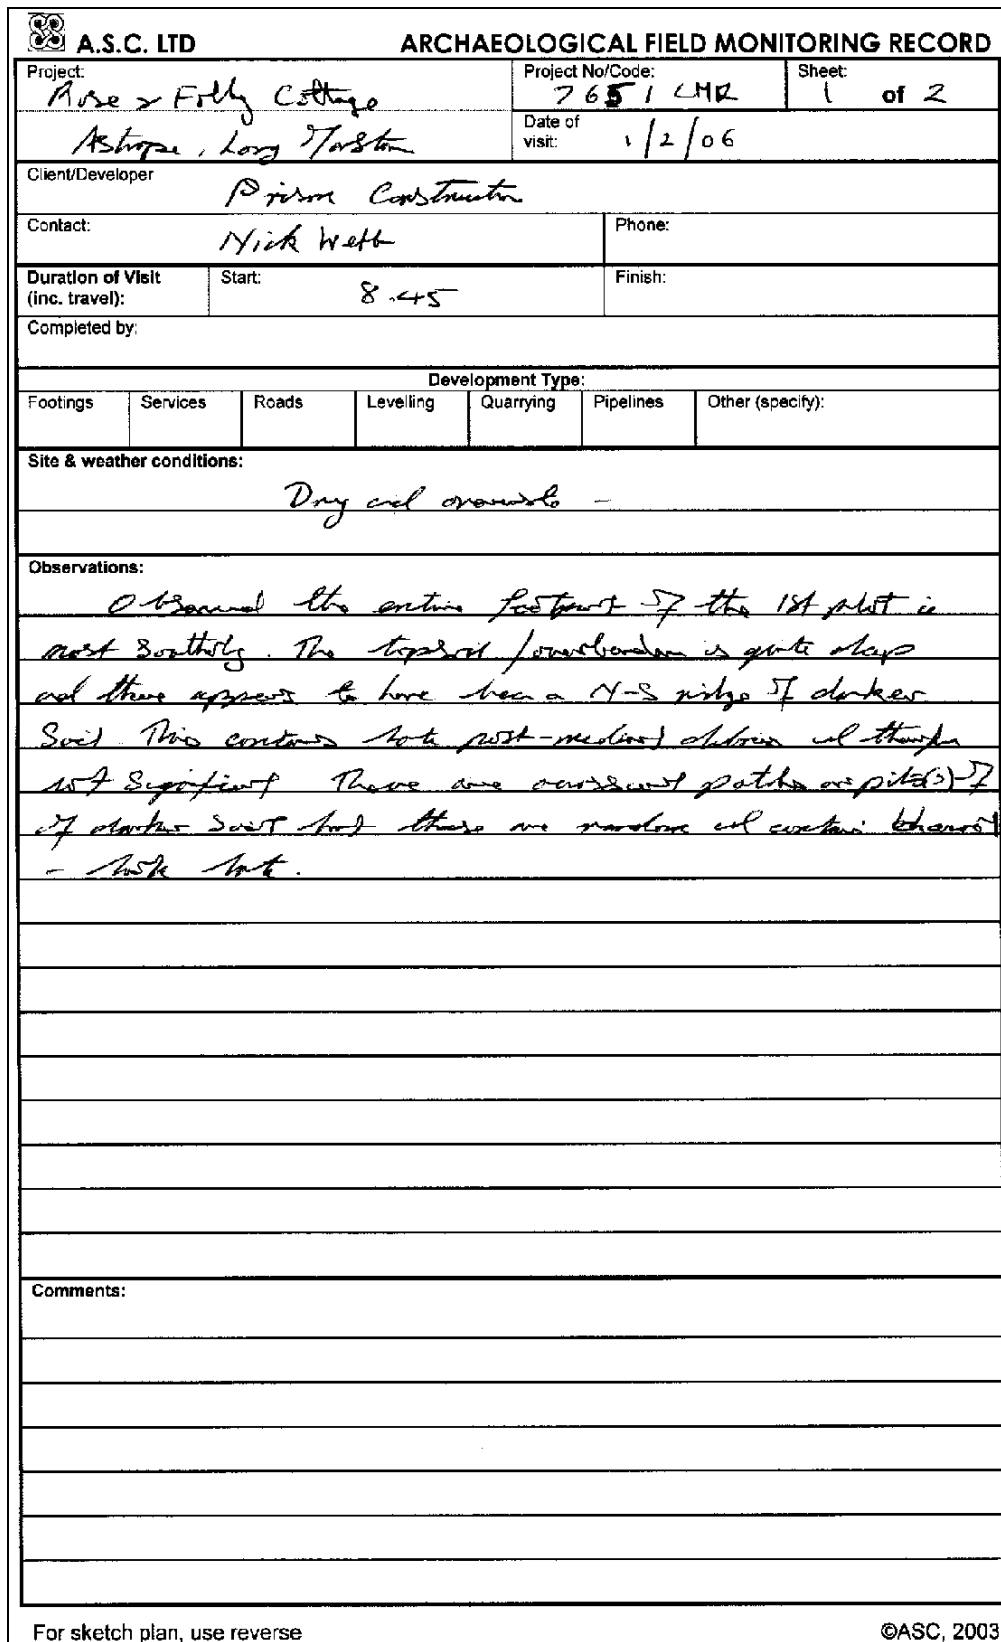 A.S.C. LTD ARCHAEOLOGICAL FIELD MONITORING RECORD
Project: Rose & Folly Cottage
Astrope, Long Marston
Project No/Code: 7651 LMR
Sheet: 1 of 2
Date of visit: 1/2/06
Client/Developer Prism Construction
Contact: Nick Webb
Phone:
Duration of Visit (inc. travel):
Start: 8.45
Finish:
Completed by:
Development Type:
Footings Services Roads Levelling Quarrying Pipelines Other (specify):
Site & weather conditions:
Dry and -
Observations:
Observed the entire footprint of the 1st plot ie
most southerly. The topsoil/overburden is quite deep
and there appears to have been a N-S ridge of darker
soil This contains late post-medieval debris and therefore
not significant There are occasional patches or pit(s) of
of darker soil but these are random and contain
- look late.
Comments:
For sketch plan, use reverse ©ASC, 2003